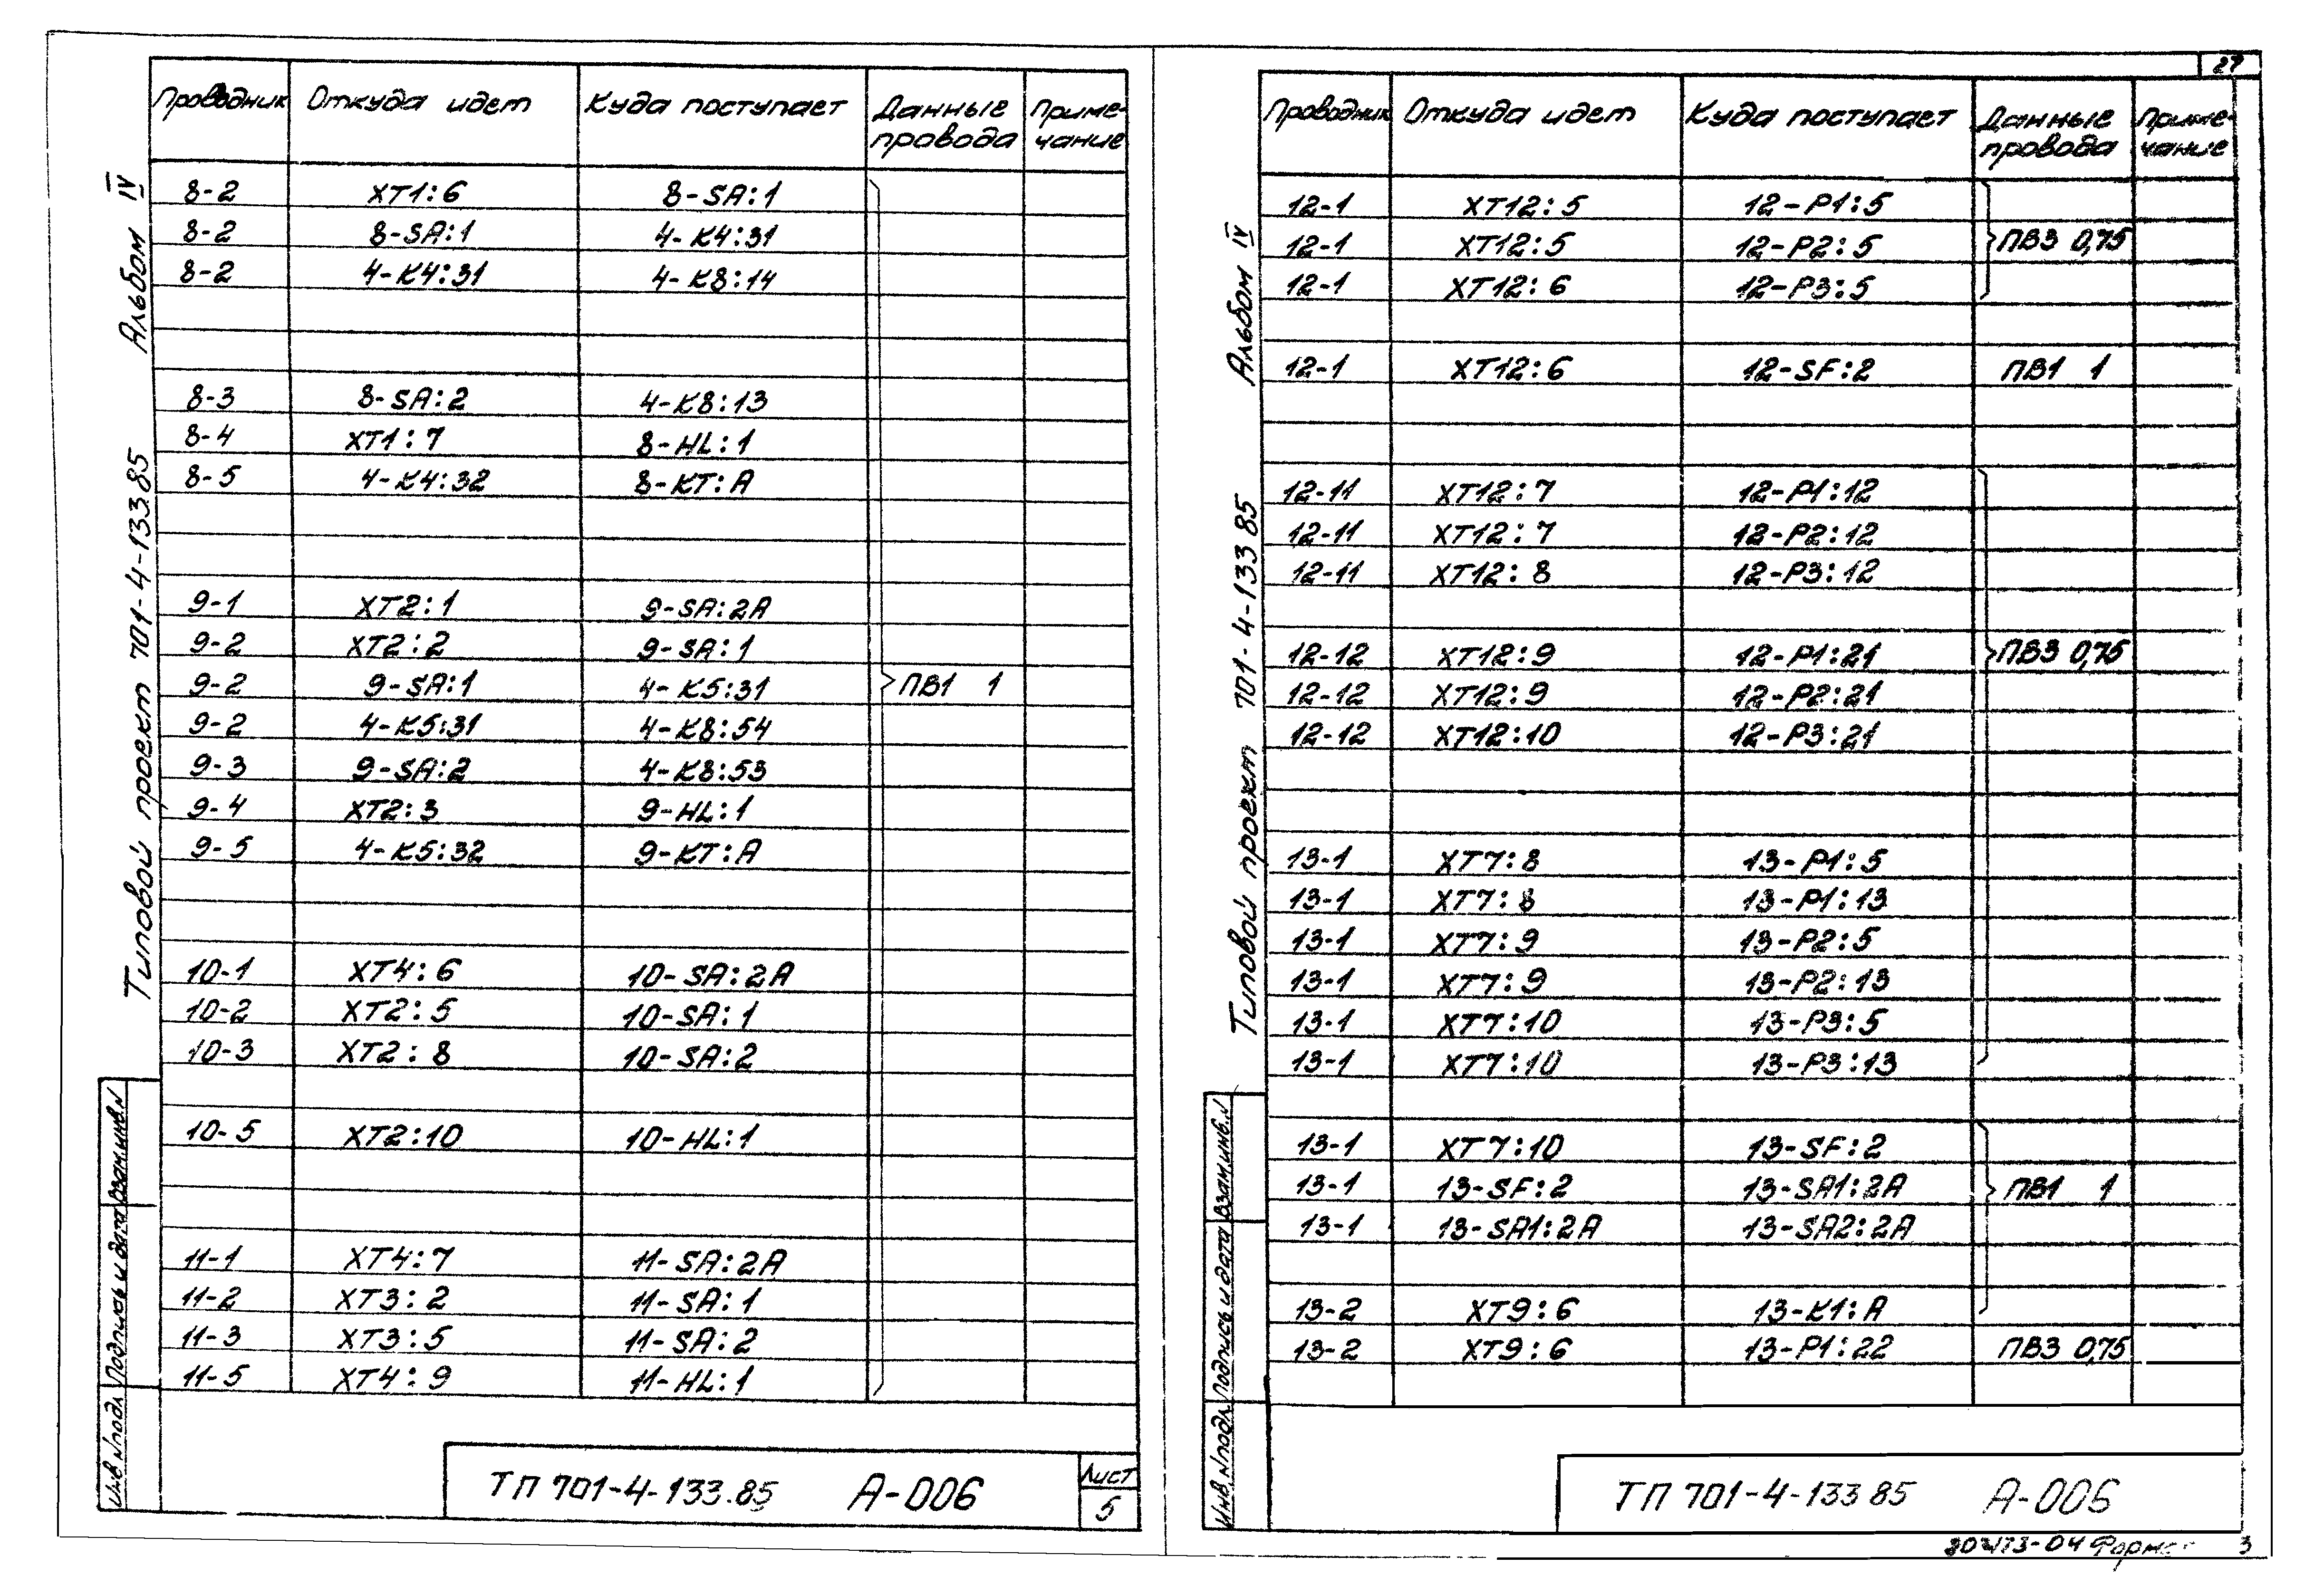 27
Альбом IV
Типовой проект 701-4-133 85
Проводник Откуда идет Куда поступает Данные провода Примечание
8-2 XT1:6 8-SA:1
8-2 8-SA:1 4-K4:31
8-2 4-K4:31 4-K8:14
8-3 8-SA:2 4-K8:13
8-4 XT1:7 8-HL:1
8-5 4-K4:32 8-KT:A
9-1 XT2:1 9-SA:2A
9-2 XT2:2 9-SA:1
9-2 9-SA:1 4-K5:31 ПВ1 1
9-2 4-K5:31 4-K8:54
9-3 9-SA:2 4-K8:53
9-4 XT2:3 9-HL:1
9-5 4-K5:32 9-KT:A
10-1 XT4:6 10-SA:2A
10-2 XT2:5 10-SA:1
10-3 XT2:8 10-SA:2
10-5 XT2:10 10-HL:1
11-1 XT4:7 11-SA:2A
11-2 XT3:2 11-SA:1
11-3 XT3:5 11-SA:2
11-5 XT4:9 11-HL:1
Инв.№подл. Подпись и дата Взам.инв.№
ТП 701-4-133.85 А-006
Лист
5
Альбом IV
Типовой проект 701-4-133 85
Проводник Откуда идет Куда поступает Данные провода Примечание
12-1 XT12:5 12-P1:5
12-1 XT12:5 12-P2:5 ПВ3 0,75
12-1 XT12:6 12-P3:5
12-1 XT12:6 12-SF:2 ПВ1 1
12-11 XT12:7 12-P1:12
12-11 XT12:7 12-P2:12
12-11 XT12:8 12-P3:12
12-12 XT12:9 12-P1:21 ПВ3 0,75
12-12 XT12:9 12-P2:21
12-12 XT12:10 12-P3:21
13-1 XT7:8 13-P1:5
13-1 XT7:8 13-P1:13
13-1 XT7:9 13-P2:5
13-1 XT7:9 13-P2:13
13-1 XT7:10 13-P3:5
13-1 XT7:10 13-P3:13
13-1 XT7:10 13-SF:2
13-1 13-SF:2 13-SA1:2A ПВ1 1
13-1 13-SA1:2A 13-SA2:2A
13-2 XT9:6 13-K1:A
13-2 XT9:6 13-P1:22 ПВ3 0,75
Инв.№подл. Подпись и дата Взам.инв.№
ТП 701-4-133 85 А-006
3